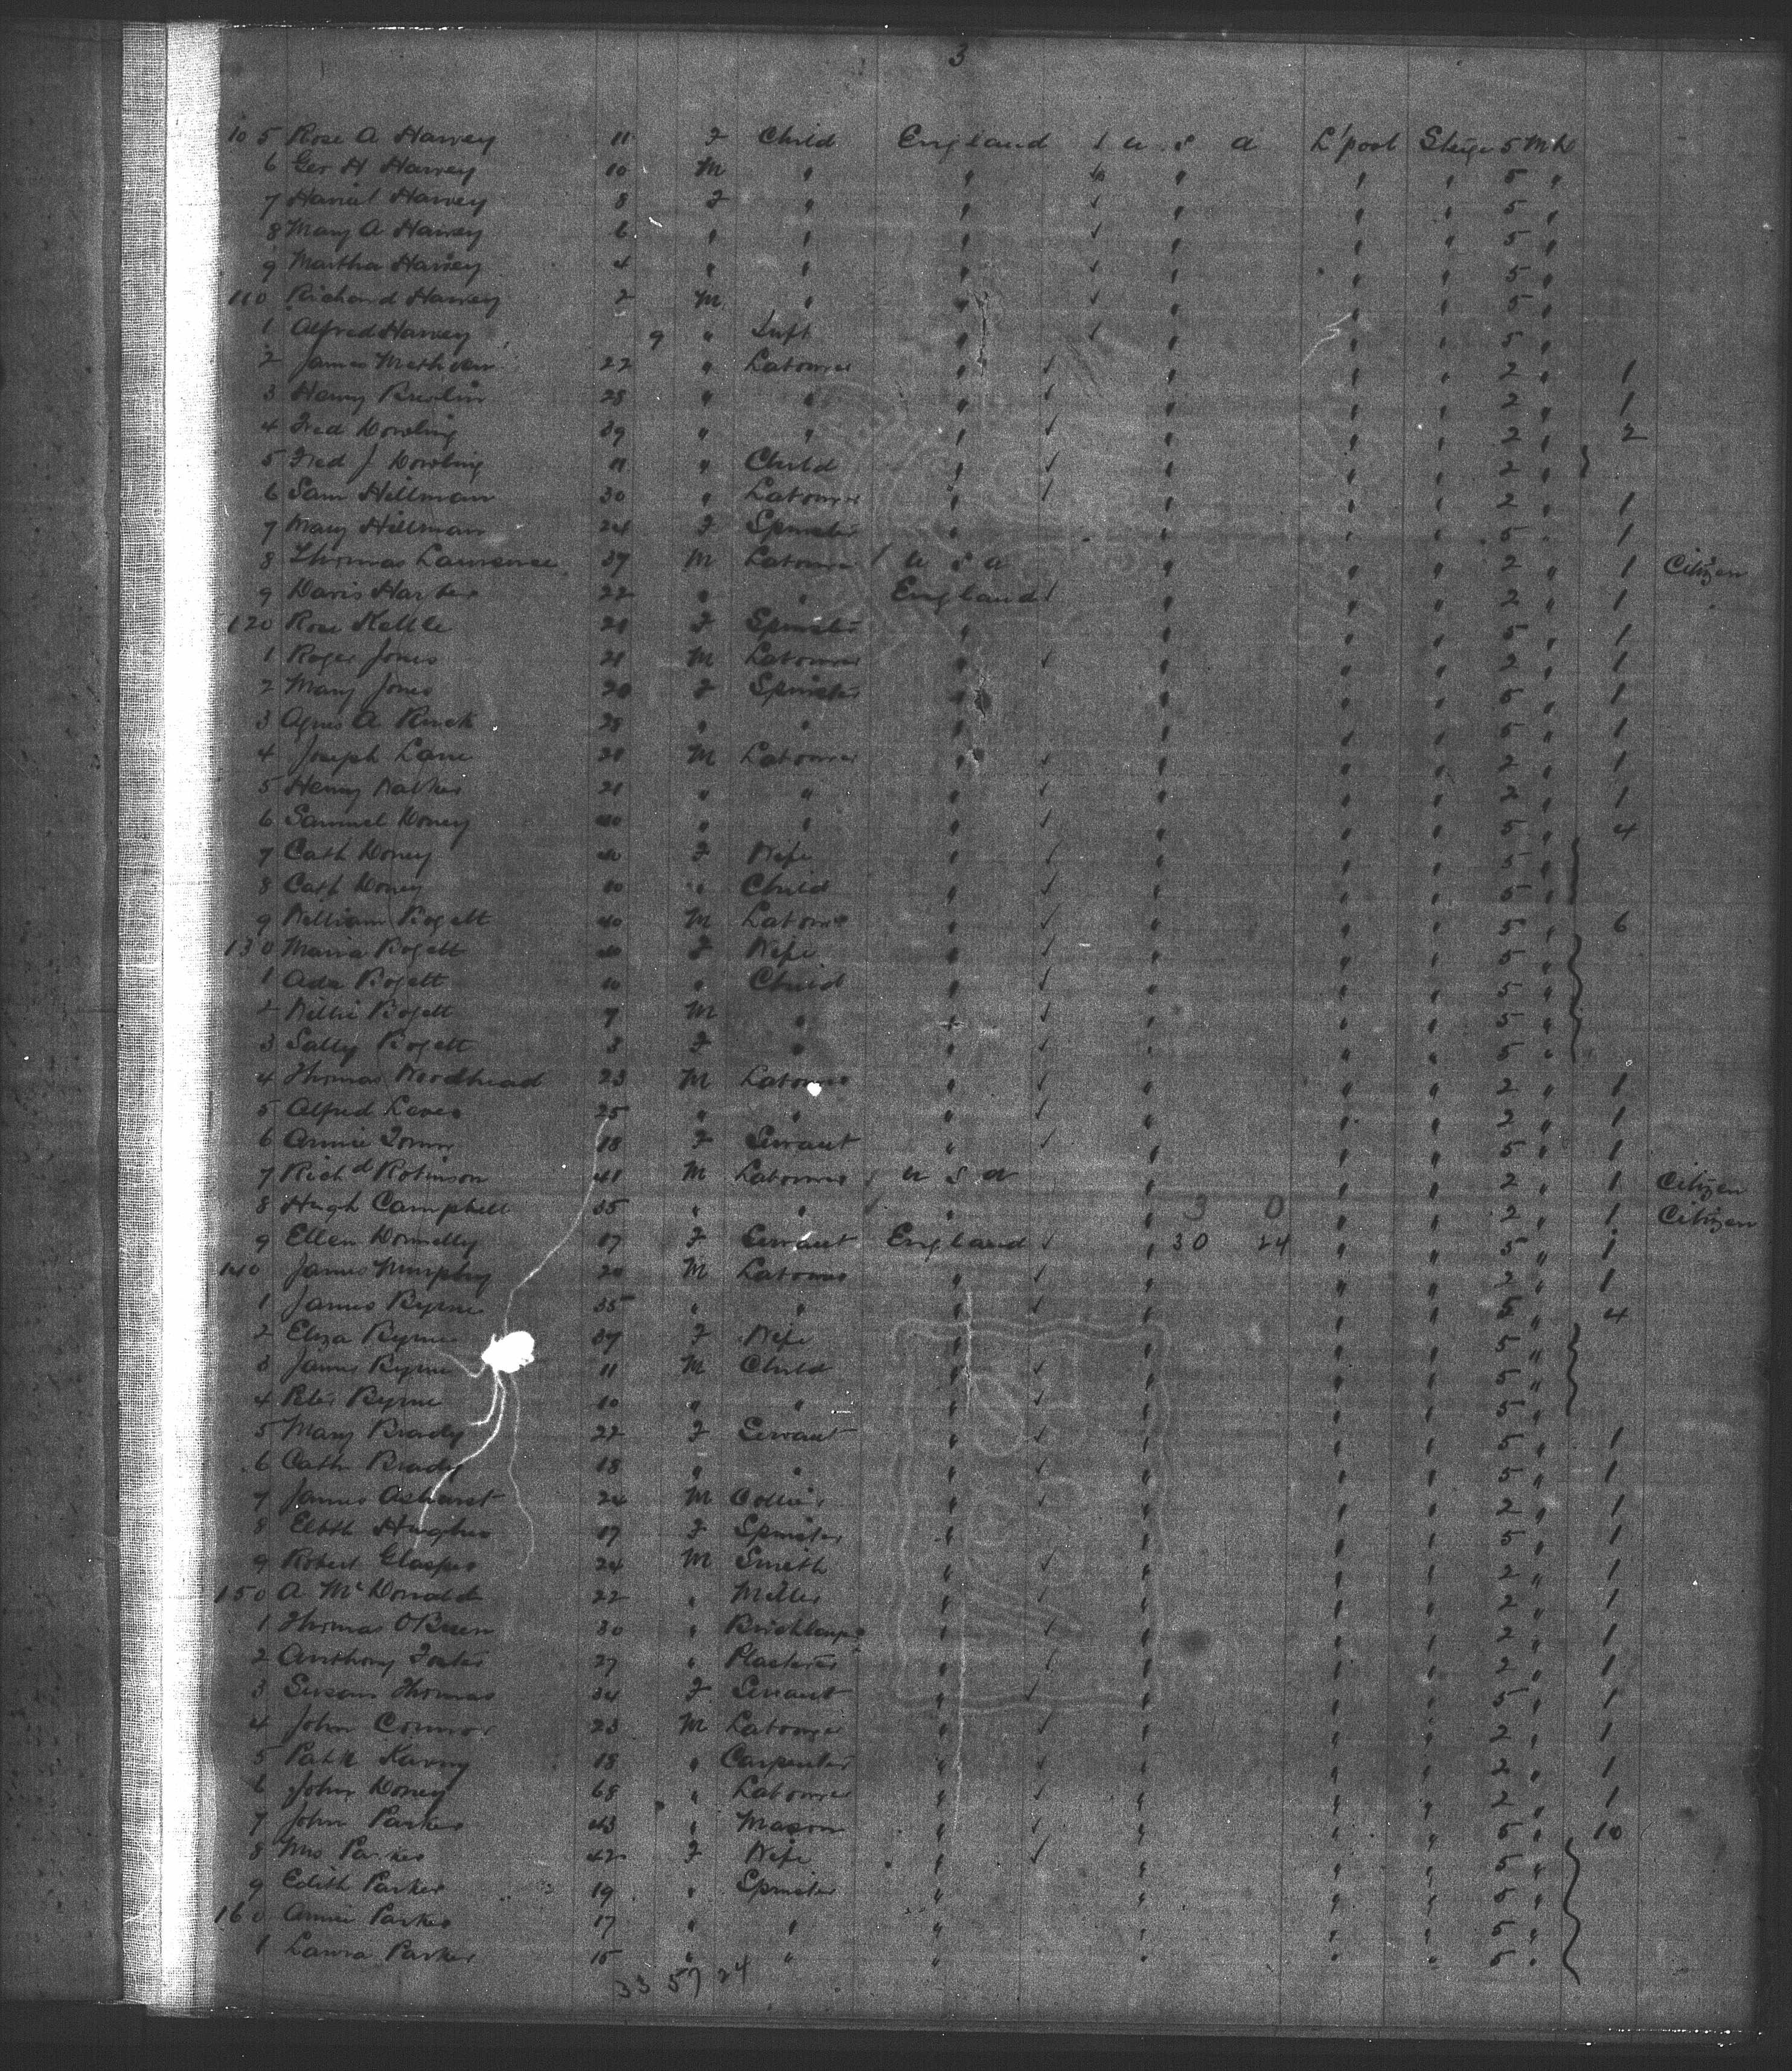 3
10 5 Rose A Harvey 11 F Child England 1 U S A L'pool Steige 5 Mk
6 Geo H Harvey 10 M " " " " " 5 "
7 Harriet Harvey 8 F " " " " " 5 "
8 Mary A Harvey 6 " " " " " " 5 "
9 Martha Harvey 4 " " " " " " 5 "
110 Richard Harvey 2 M " " " " " 5 "
1 Alfred Harvey 9 " Inft " " " " 5 "
2 James 22 " Labourer " " " " 2 " 1
3 Henry 28 " " " " " " 2 " 1
4 Fred Dowling 39 " " " " " " 2 " 2
5 Fred J Dowling 11 " Child " " " " 2 "
6 Sam Hillman 30 " Labourer " " " " 2 " 1
7 Mary Hillman 24 F Spinster " " " " 5 " 1
8 Thomas Lawrence 39 M Labourer / U S A " " " 2 " 1 Citizen
9 Davis 22 " " England " " " 2 " 1
120 Rose Kettle 21 F Spinster " " " " 5 " 1
1 Roger Jones 21 M Labourer " " " " 2 " 1
2 Mary Jones 20 F Spinster " " " " 5 " 1
3 Agnes A 28 " " " " " " 5 " 1
4 Joseph Lane 21 M Labourer " " " " 2 " 1
5 Henry 21 " " " " " " 2 " 1
6 Samuel Doney 40 " " " " " " 5 " 4
7 Cath Doney 40 F Wife " " " " 5 "
8 Cath Doney 10 " Child " " " " 5 "
9 William Bogett 40 M Labourer " " " " 5 " 6
130 Maria Bogett 40 F Wife " " " " 5 "
1 Ada Bogett 10 " Child " " " " 5 "
2 Willie Bogett 7 M " " " " " 5 "
3 Sally Bogett 3 F " " " " " 5 "
4 Thomas Woodhead 23 M Labourer " " " " 2 " 1
5 Alfred 25 " " " " " " 2 " 1
6 Annie 18 F Servant " " " " 5 " 1
7 Richd Robinson 41 M Labourer / U S A " " " 2 " 1 Citizen
8 Hugh Campbell 35 " " " " 3 0 " " 2 " 1 Citizen
9 Ellen Donnelly 17 F Servant England " 30 24 " " 5 " 1
140 James Murphy 20 M Labourer " " " " 2 " 1
1 James Byrne 35 " " " " " " 5 " 4
2 Eliza Byrne 37 F Wife " " " " 5 "
3 James Byrne 11 M Child " " " " 5 "
4 Peter Byrne 10 " " " " " " 5 "
5 Mary Brady 22 F Servant " " " " 5 " 1
6 Cath Brady 18 " " " " " " 5 " 1
7 James Ashurst 24 M Collier " " " " 2 " 1
8 Elbth Hughes 17 F Spinster " " " " 5 " 1
9 Robert 24 M Smith " " " " 2 " 1
150 A McDonald 22 " Miller " " " " 2 " 1
1 Thomas O'Brien 30 " " " " " 2 " 1
2 Anthony Foster 27 " Plasterer " " " " 2 " 1
3 Susan Thomas 34 F Servant " " " " 5 " 1
4 John Connor 23 M Labourer " " " " 2 " 1
5 Patk 18 " Carpenter " " " " 2 " 1
6 John Doney 68 " Labourer " " " " 2 " 1
7 John Parker 43 " Mason " " " " 5 " 10
8 Mrs Parker 42 F Wife " " " " 5 "
9 Edith Parker 19 " Spinster " " " " 5 "
160 Annie Parker 17 " " " " " " 5 "
1 Laura Parker 15 " " " " " " 5 "
33 57 24